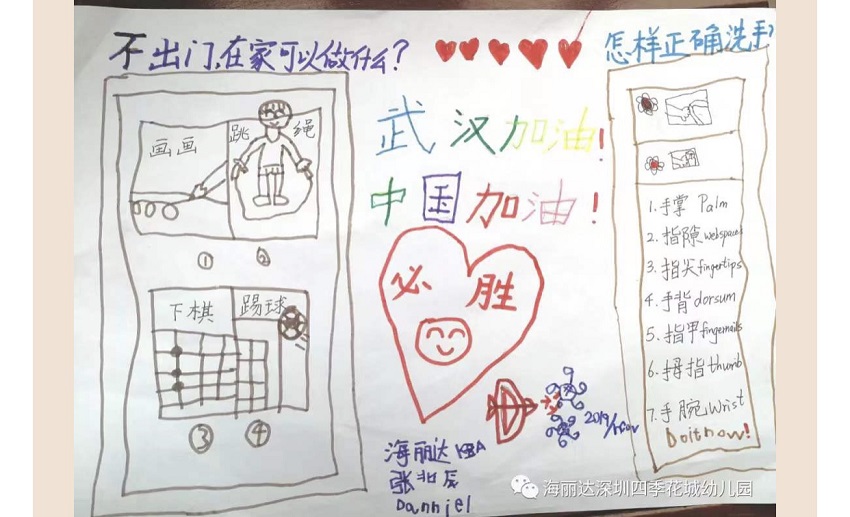 不出门,在家可以做什么?
画画
跳绳
①
②
下棋
踢球
③
④
武汉加油!
中国加油!
必胜
2019/nCov
海丽达 KBA
张北辰
Danniel
怎样正确洗手
1.手掌 Palm
2.指隙 webspaces
3.指尖 fingertips
4.手背 dorsum
5.指甲 fingernails
6.拇指 thumb
7.手腕 Wrist
Do it now!
海丽达深圳四季花城幼儿园